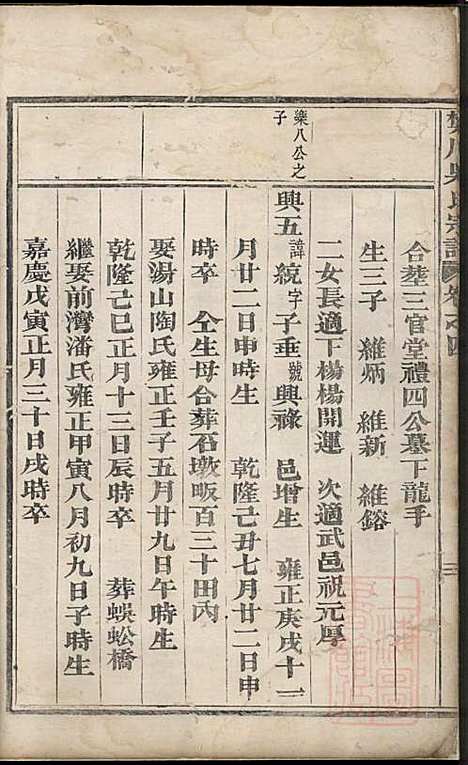 樊川吳氏宗譜 卷之四 三
合塟三官堂禮四公墓下龍手
生三子 維炳 維新 維鎔
二女長適下楊楊開運 次適武邑祝元厚
樂八公之子
興五 諱統 字子垂 號興祿 邑增生 雍正庚戌十一
月廿二日申時生 乾隆己丑七月廿二日申
時卒 仝生母合葬石墩畈百三十田內
娶湯山陶氏雍正壬子五月廿九日午時生
乾隆己巳正月十三日辰時卒 葬蜈蚣橋
繼娶前灣潘氏雍正甲寅八月初九日子時生
嘉慶戊寅正月三十日戌時卒